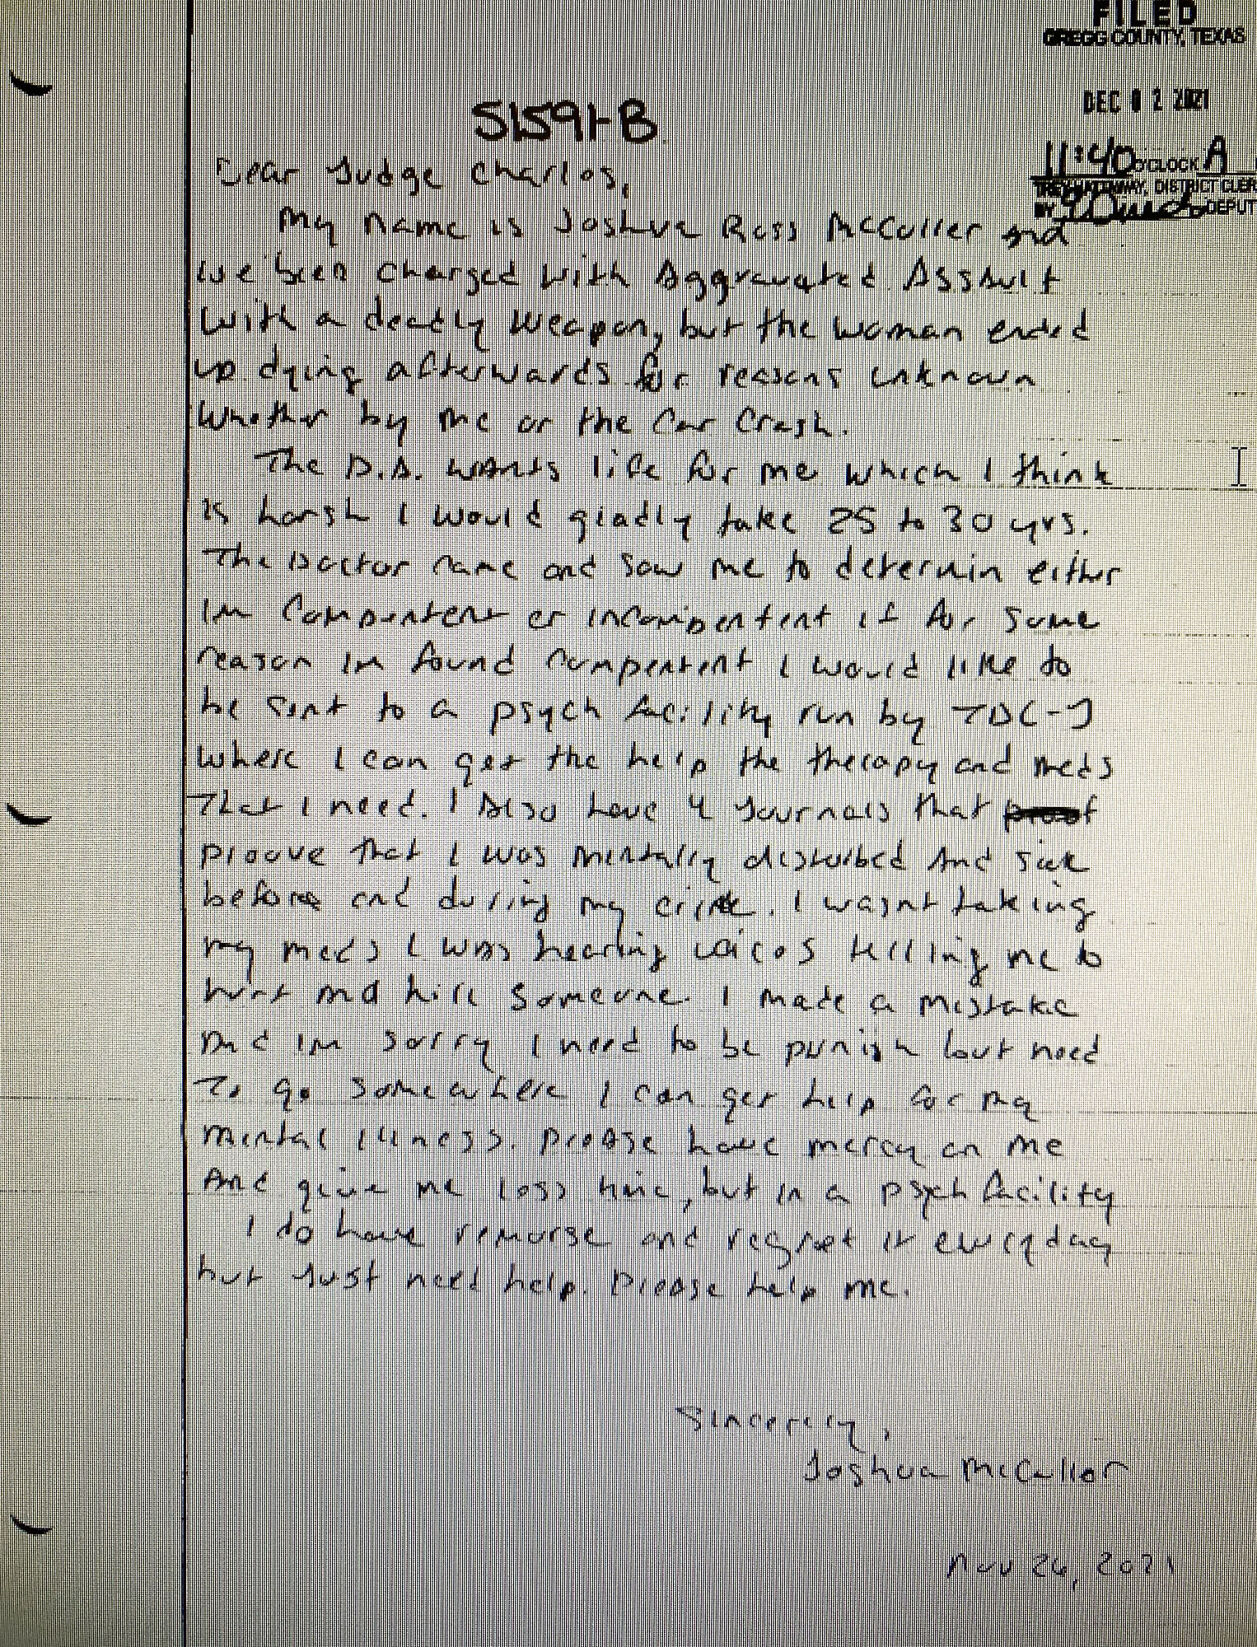 FILED
GREGG COUNTY, TEXAS
DEC 02 2021
11:40 O'CLOCK A
DISTRICT CLER
BY DEPUT
51591-B
Dear Judge Charles,
My name is Joshua Ross McCuller and
I've been charged with Aggravated Assault
with a deadly weapon, but the woman ended
up dying afterwards for reasons unknown
whether by me or the car crash.
The D.A. wants life for me which I think
is harsh I would gladly take 25 to 30 yrs.
The Doctor came and saw me to determin either
im compentent or incompentent if for some
reason im found compentent I would like to
be sent to a psych facility run by TDC-J
where I can get the help the therapy and meds
that I need. I also have 4 Journals that
proove that I was mentally disturbed and sick
before and during my crime. I wasnt taking
my meds I was hearing voices telling me to
hurt and kill someone. I made a mistake
and im sorry I need to be punish but need
to go somewhere I can get help for my
mental illness. Please have mercy on me
And give me less time, but in a psych facility
I do have remorse and regret it everyday
but Just need help. Please help me.
Sincerely,
Joshua McCuller
Nov 26, 2021